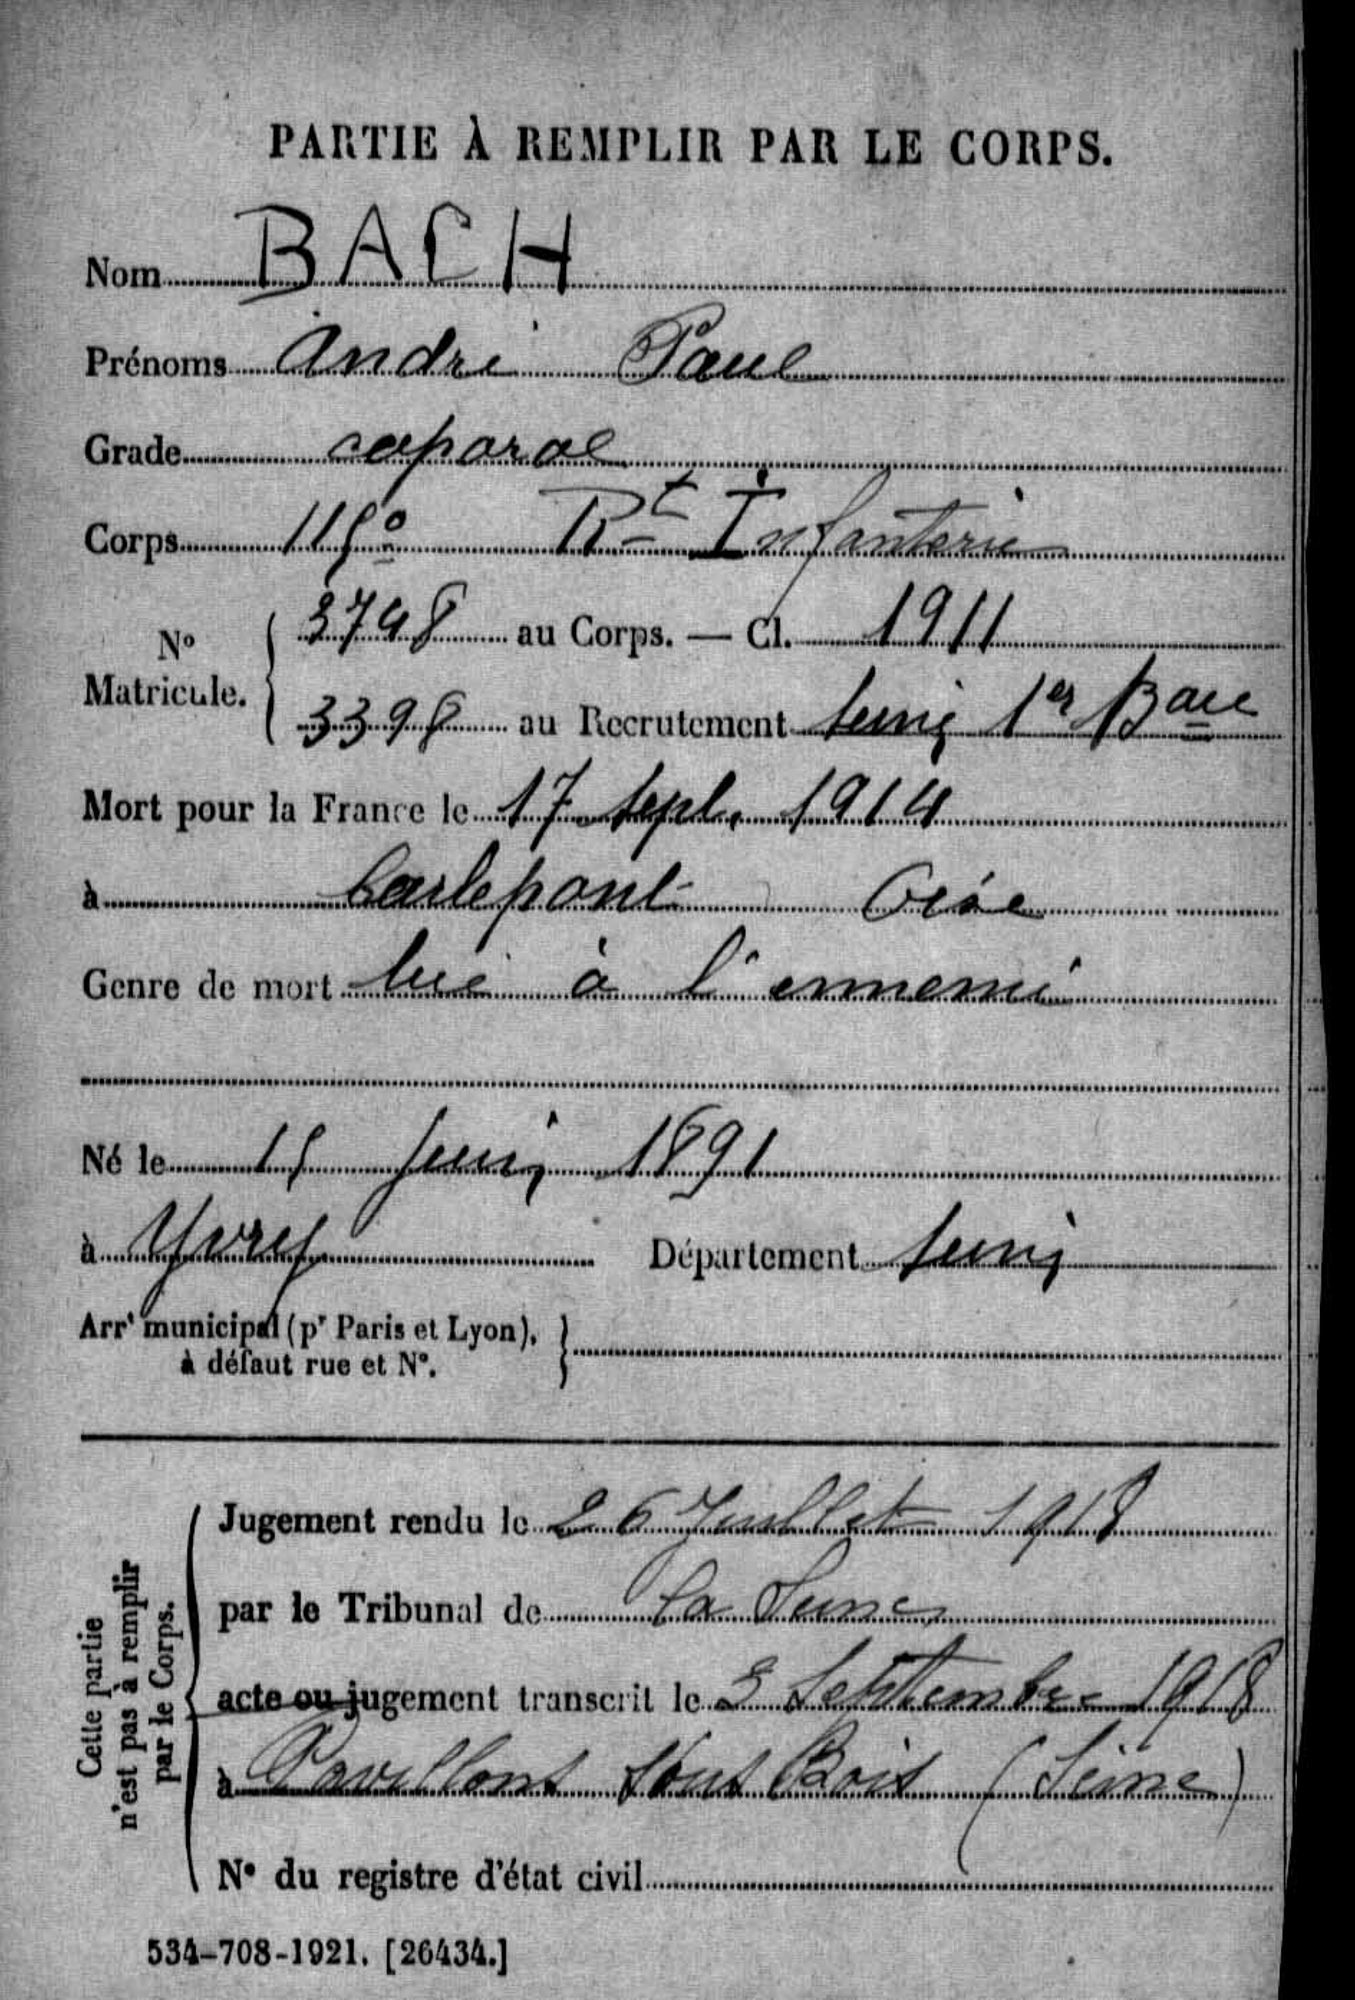 PARTIE À REMPLIR PAR LE CORPS.
Nom BACH
Prénoms André Paul
Grade caporal
Corps 115e Rt Infanterie
No Matricule. 3798 au Corps. — Cl. 1911
3398 au Recrutement Seine 1er Bau
Mort pour la France le 17 Sept. 1914
à Carlepont Oise
Genre de mort tué à l'ennemi
Né le 15 Juin 1891
à Yvry Département Seine
Arrt municipal (pr Paris et Lyon),
à défaut rue et No.
Cette partie
n'est pas à remplir
par le Corps.
Jugement rendu le 26 Juillet 1918
par le Tribunal de la Seine
acte ou jugement transcrit le 3 Septembre 1918
à Pavillons sous Bois (Seine)
No du registre d'état civil
534-708-1921. [26434.]